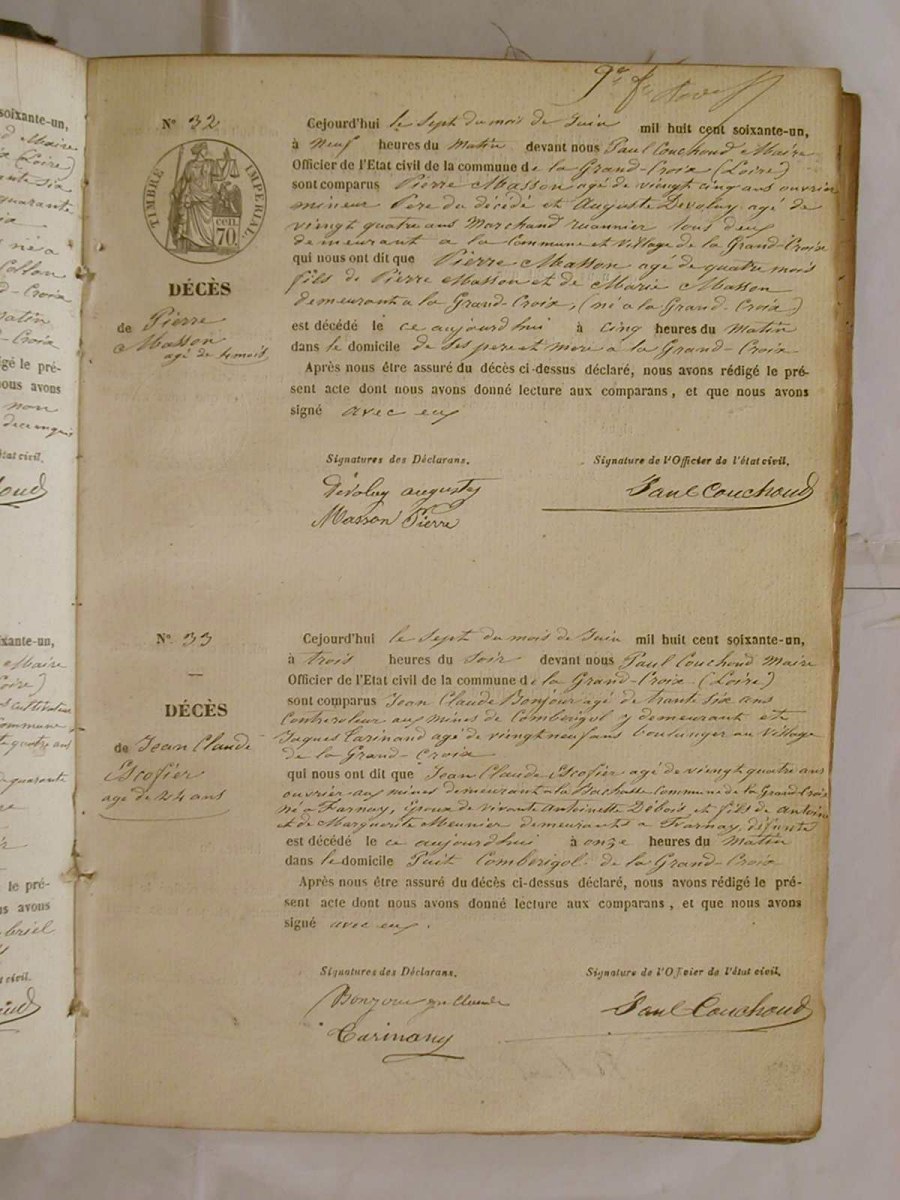 soixante-un,
Maire
(Loire)
quarante
né a
d-Croix
Matin
d-Croix
gé le pré-
ous avons
non
état civil.
9e f.
N° 32
TIMBRE IMPERIAL
CEN. 70
DÉCÈS
de Pierre
Masson
agé de 4 mois
Cejourd'hui le Sept du mois de Juin mil huit cent soixante-un,
à Neuf heures du Matin devant nous Paul Couchoud Maire
Officier de l'Etat civil de la commune de la Grand-Croix (Loire)
sont comparus Pierre Masson agé de vieingt cinq ans ouvrier
mineur Pere du décédé et Auguste Devoluy agé de
vieingt quatre ans Marchand ruannier tous deux
demeurant a la Commune et Village de la Grand-Croix
qui nous ont dit que Pierre Masson agé de quatre mois
fils de Pierre Masson et de Marie Masson
demeurant a la Grand-Croix, (né a la Grand-Croix)
est décédé le ce aujourd'hui à cinq heures du Matin
dans le domicile de ses pere et mere à la Grand-Croix
Après nous être assuré du décès ci-dessus déclaré, nous avons rédigé le pré-
sent acte dont nous avons donné lecture aux comparans, et que nous avons
signé avec eux
Signatures des Déclarans.
Signature de l'Officier de l'état civil.
Dévoluy auguste
Masson Pierre
Paul Couchoud
ixante-un,
Maire
Loire)
cultivateur
Commune
quatre ans
de quarante
le pré-
s avons
briel
t civil.
N° 33
DÉCÈS
de Jean Claude
Escofier
age de 24 ans
Cejourd'hui le Sept du mois de Juin mil huit cent soixante-un,
à trois heures du Soir devant nous Paul Couchoud Maire
Officier de l'Etat civil de la commune de la Grand-Croix (Loire)
sont comparus Jean Claude Bonjour agé de trante six ans
Controleur aux mines de Comberigol y demeurant et
Jaques Tarinand agé de vieingt neuf ans boulanger au Village
de la Grand-Croix
qui nous ont dit que Jean Claude Escofier agé de vieingt quatre ans
ouvrier aux mines demeurant a la Bachasse Commune de la Grand Croix
né a Farnay, Epoux de vivante Antoinette Débois et fils de Antoine
et de Marguerite Meunier demeurants a Farnay, difunte
est décédé le ce aujourd'hui à onze heures du Matin
dans le domicile Puit Comberigol de la Grand-Croix
Après nous être assuré du décès ci-dessus déclaré, nous avons rédigé le pré-
sent acte dont nous avons donné lecture aux comparans, et que nous avons
signé avec eux.
Signatures des Déclarans.
Signature de l'Officier de l'état civil.
Bonjour jn Claude
Tarinand
Paul Couchoud